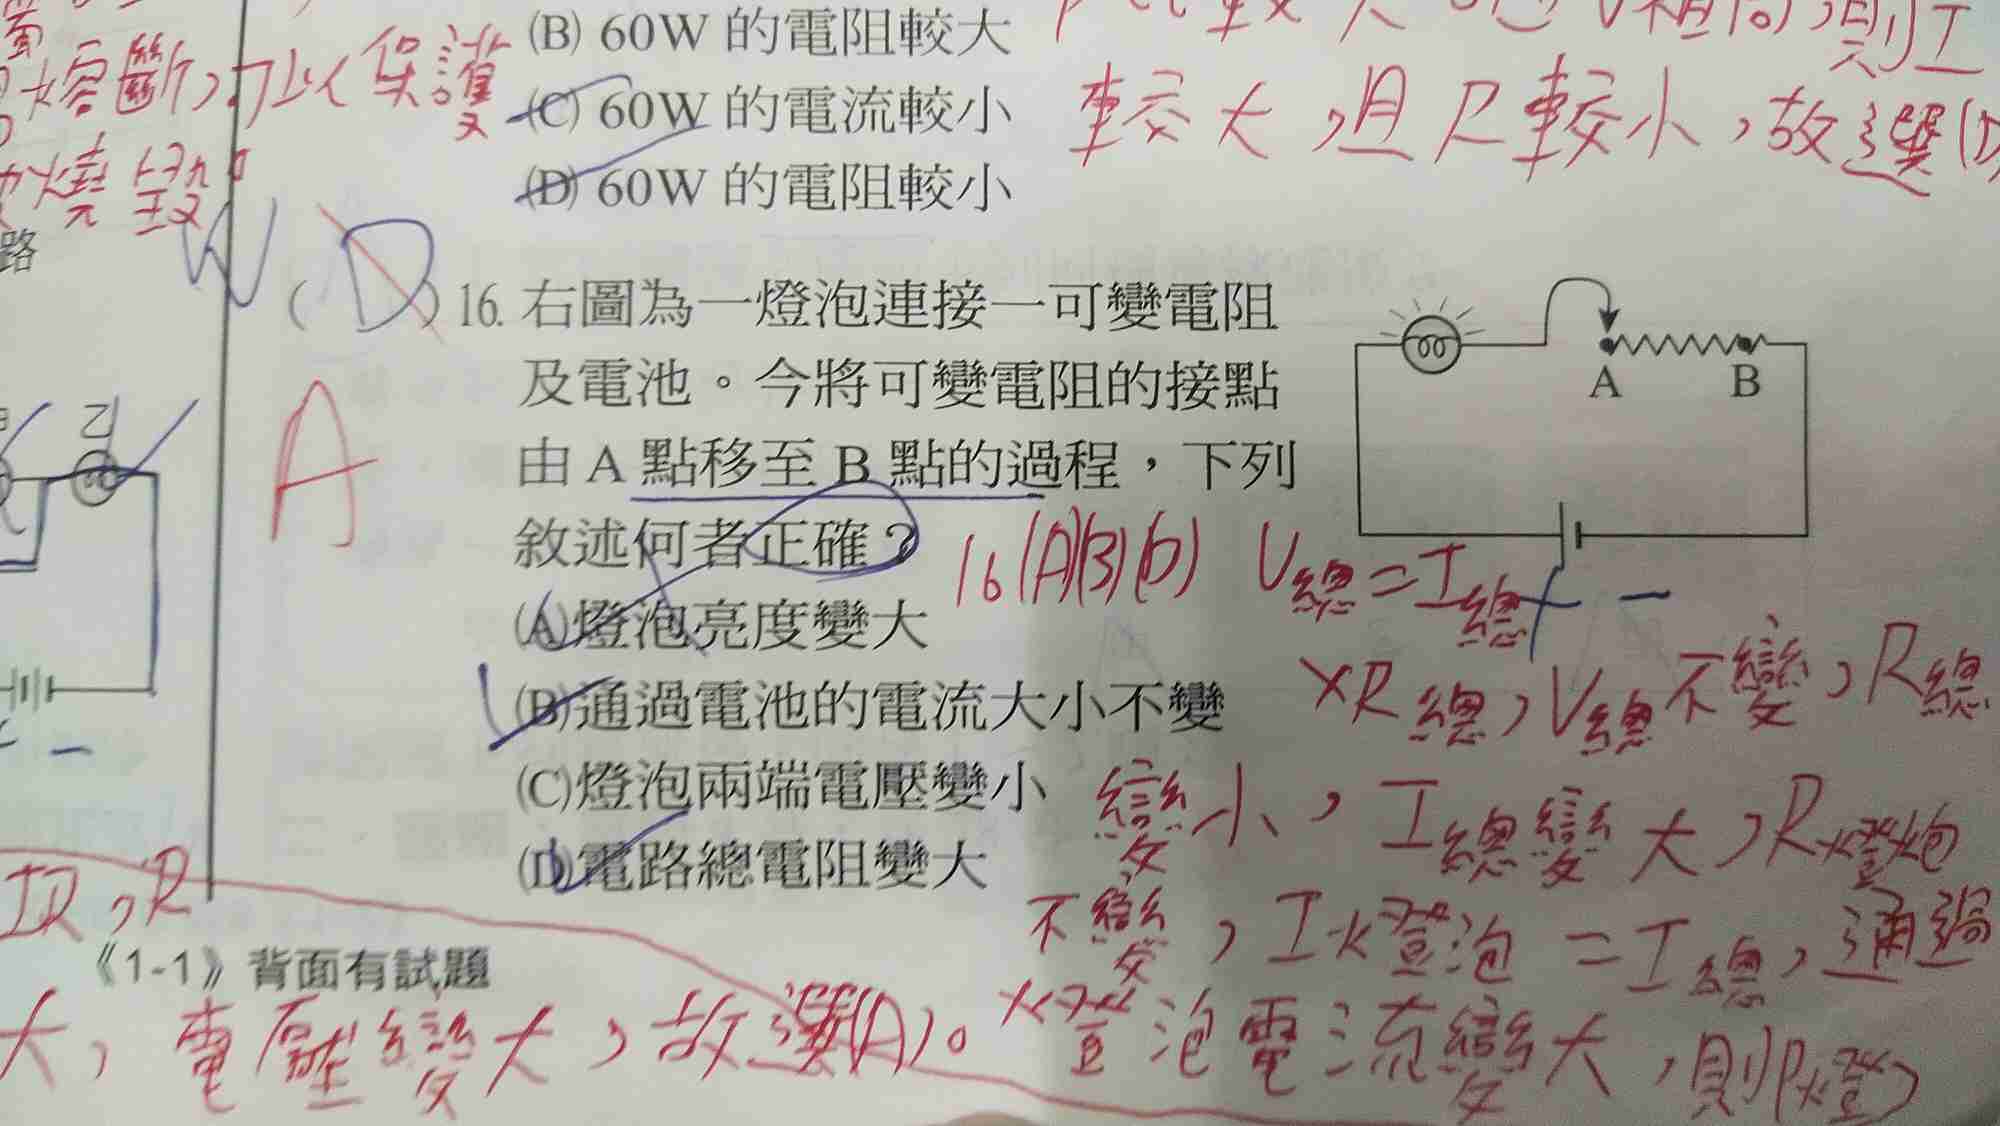 (B) 60W 的電阻較大
(C) 60W 的電流較小
(D) 60W 的電阻較小
熔斷，以保護
燒毀。
路
則I
較大，且R較小，故選(D)
(D)16. 右圖為一燈泡連接一可變電阻
及電池。今將可變電阻的接點
由 A 點移至 B 點的過程，下列
敘述何者正確？
(A)燈泡亮度變大
(B)通過電池的電流大小不變
(C)燈泡兩端電壓變小
(D)電路總電阻變大
A
A B
乙
16(A)(B)(D) V總=I總
×R總，V總不變，R總
變小，I總變大，R燈泡
不變，I燈泡=I總，通過
燈泡電流變大，則P燈
IR，R
大，電壓變大，故選(A)。
《1-1》背面有試題